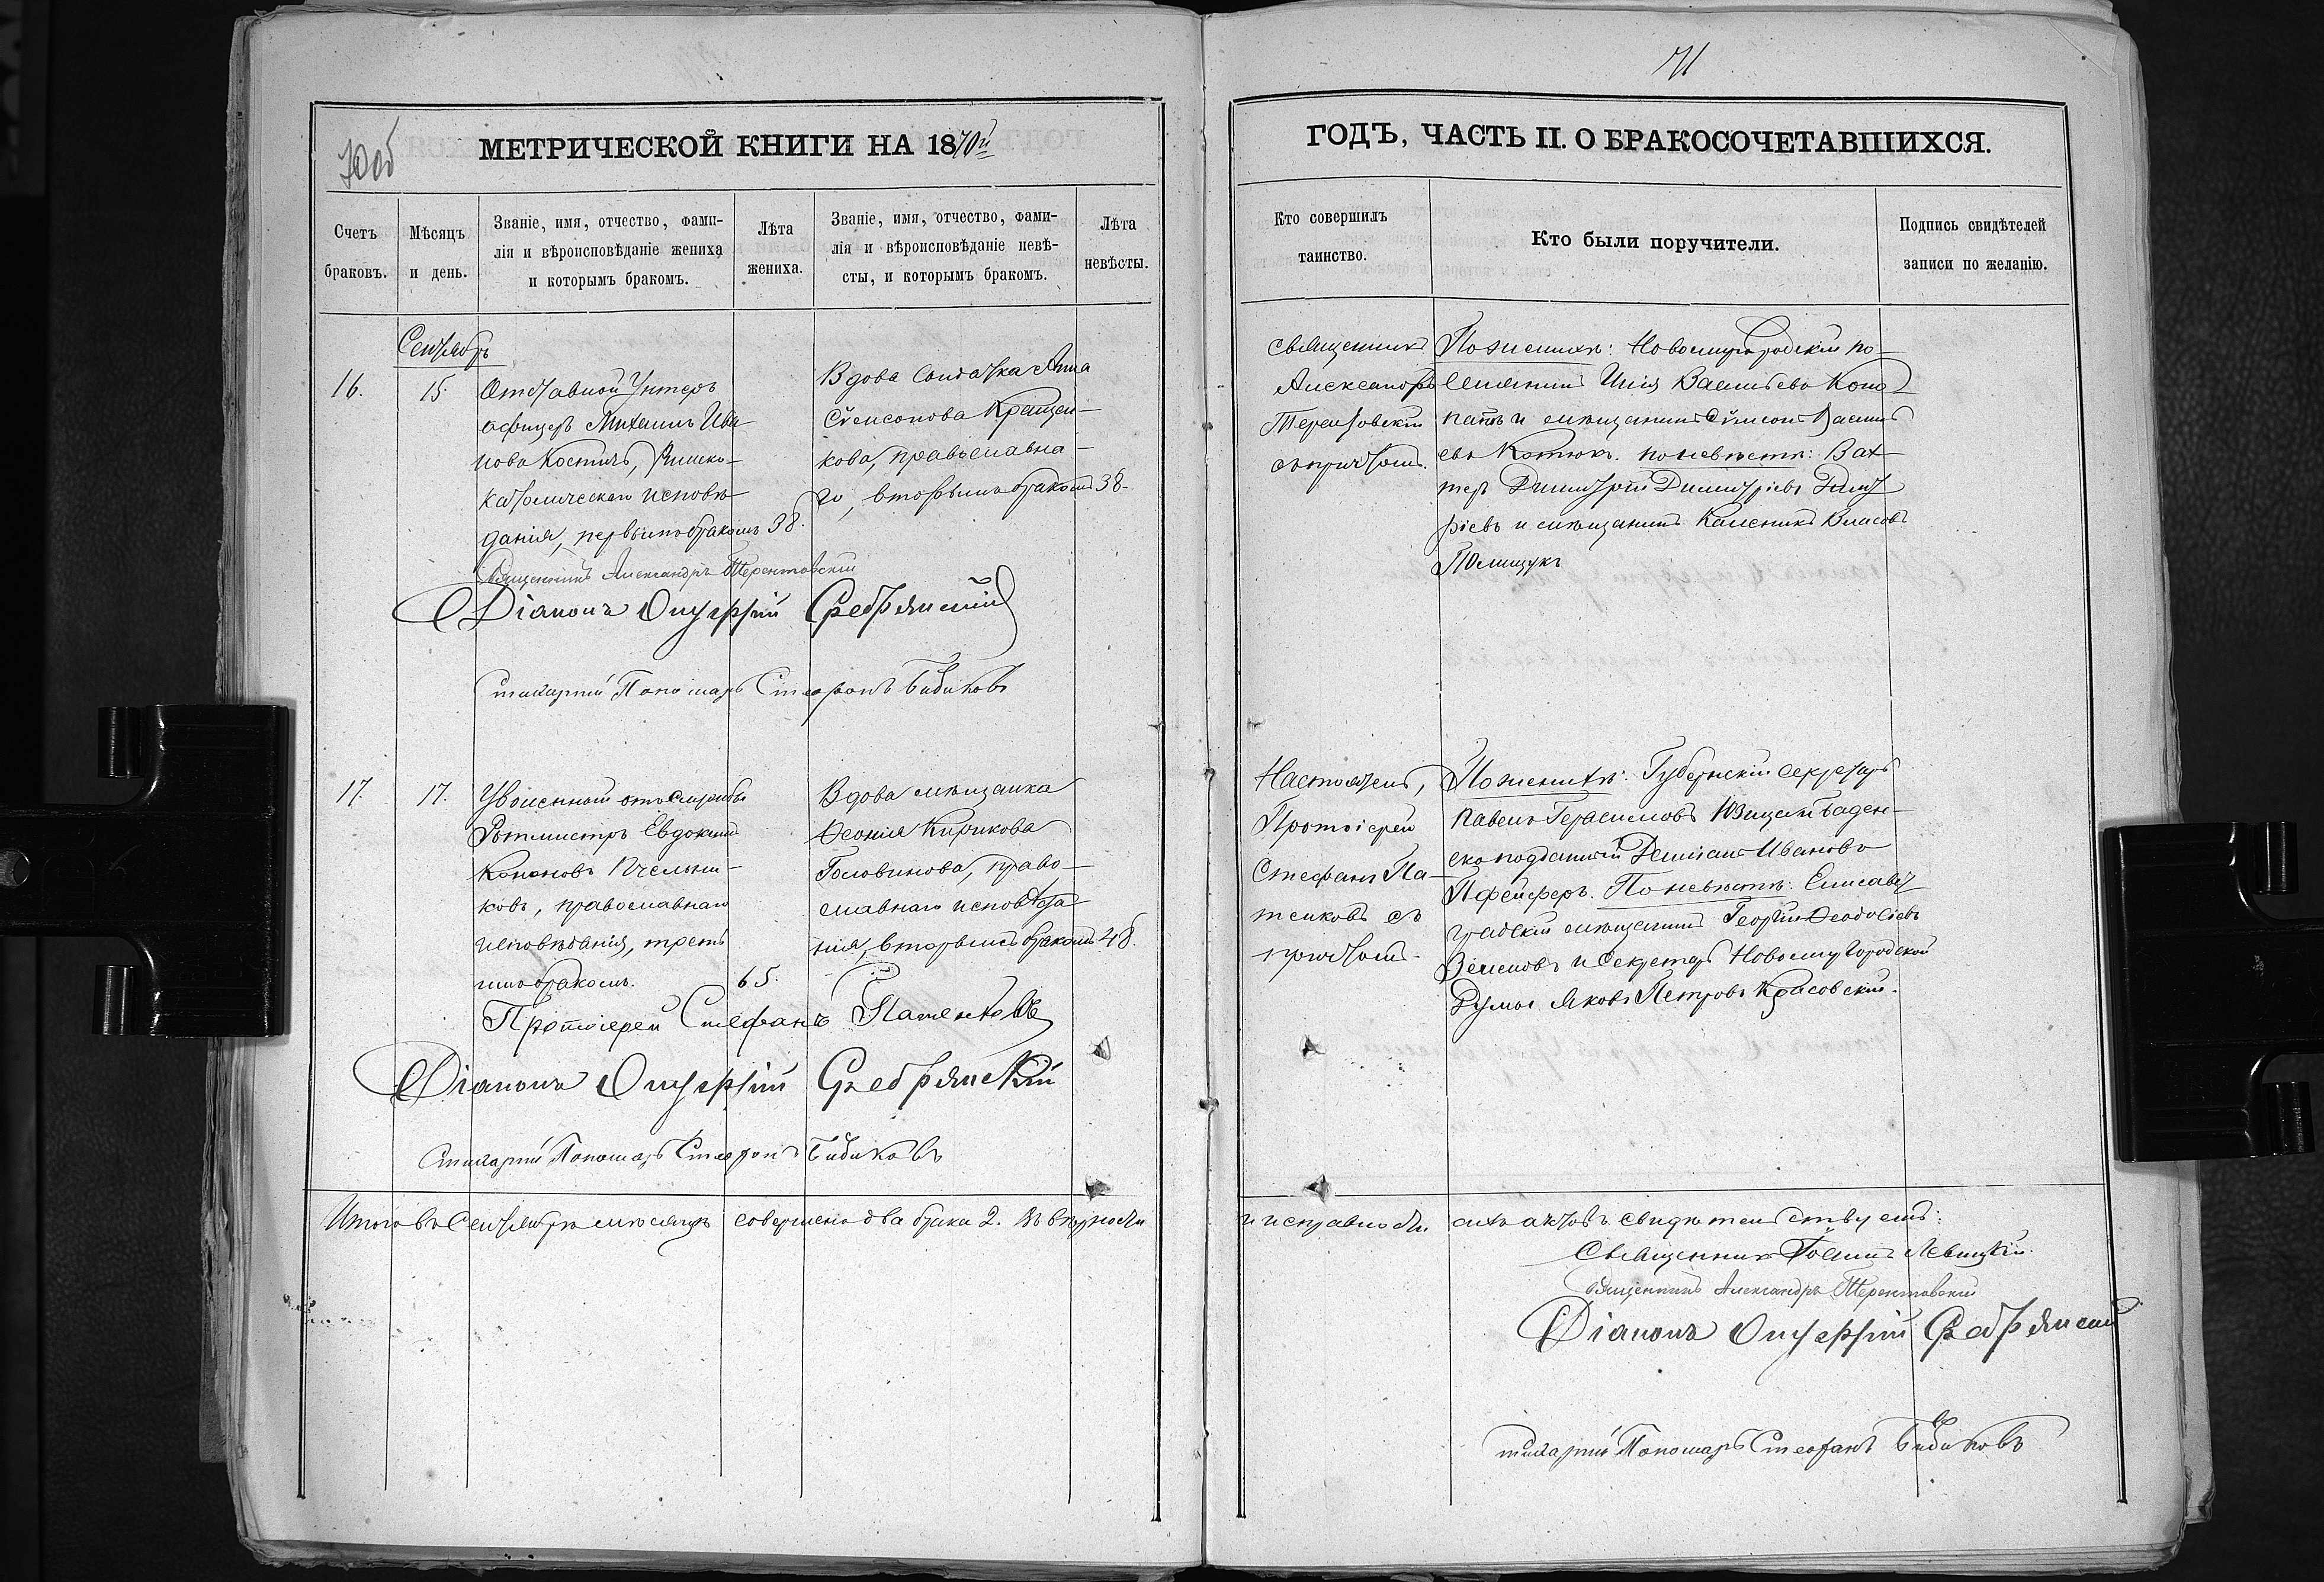 70об
МЕТРИЧЕСКОЙ КНИГИ НА 1870й
Счетъ
браковъ.
Мѣсяцъ
и день.
Званіе, имя, отчество, фами-
лія и вѣроисповѣданіе жениха
и которымъ бракомъ.
Лѣта
жениха.
Званіе, имя, отчество, фами-
лія и вѣроисповѣданіе невѣ-
сты, и которымъ бракомъ.
Лѣта
невѣсты.
Сентябрь
16.
15.
Отставной Унтеръ
офицеръ Михаилъ Ива
новъ Костичъ, Римско-
Католическаго исповѣ
данія, первымъ бракомъ
38.
Вдова Солдатка Анна
Сѵмеонова Кращен-
кова, православна-
го, вторымъ бракомъ
38.
Священникъ Александръ Терентовскій
Діаконъ Онуфрій Сребрянскій
стихарный Пономарь Стефанъ Бибиковъ
17.
17.
Уволенный отъ службы
Ротмистръ Евдокимъ
Кононовъ Пчельни-
ковъ, православнаго
исповѣданія, треть
имъ бракомъ.
65.
Вдова мѣщанка
Ѳеонія Кирикова
Головинова, право-
славнаго исповѣда
нія, вторымъ бракомъ
48.
Протоіерей Стефанъ Патенковъ
Діаконъ Онуфрій Сребрянскій
Стихарный Пономарь Стефанъ Бибиковъ
Итого въ Сентябрѣ мѣсяцѣ совершено два брака 2. Въ вѣрности
71
ГОДЪ, ЧАСТЬ II. О БРАКОСОЧЕТАВШИХСЯ.
Кто совершилъ
таинство.
Кто были поручители.
Подпись свидѣтелей
записи по желанію.
Священникъ
Александръ
Терентовскій
съ причтомъ.
По женихѣ: Новомиргородскій по-
селянинъ Илія Васильевъ
и мѣщанинъ Сѵмеонъ Василь
евъ Котюкъ. по невѣстѣ: Вах-
теръ Димитрій Димитріевъ Димит
ріевъ и мѣщанинъ Каленикъ Власовъ
Полищукъ
Настоятель,
Протоіерей
Стефанъ Па-
тенковъ съ
причтомъ.
По женихѣ: Губернскій Секретарь
Павелъ Герасимовъ баден-
скоподданный Даміанъ Ивановъ
Пфейферъ. По невѣстѣ: Елисавет
градскій мѣщанинъ Георгій Ѳеодосіевъ
и Секретарь Новомиргородской
Думы Яковъ Петровъ Красовскій.
и исправности сихъ актовъ свидѣтельствуемъ:
Священникъ Іоаннъ Левицкій.
Священникъ Александръ Терентовскій
Діаконъ Онуфрій Сребрянскій
стихарный Пономарь Стефанъ Бибиковъ